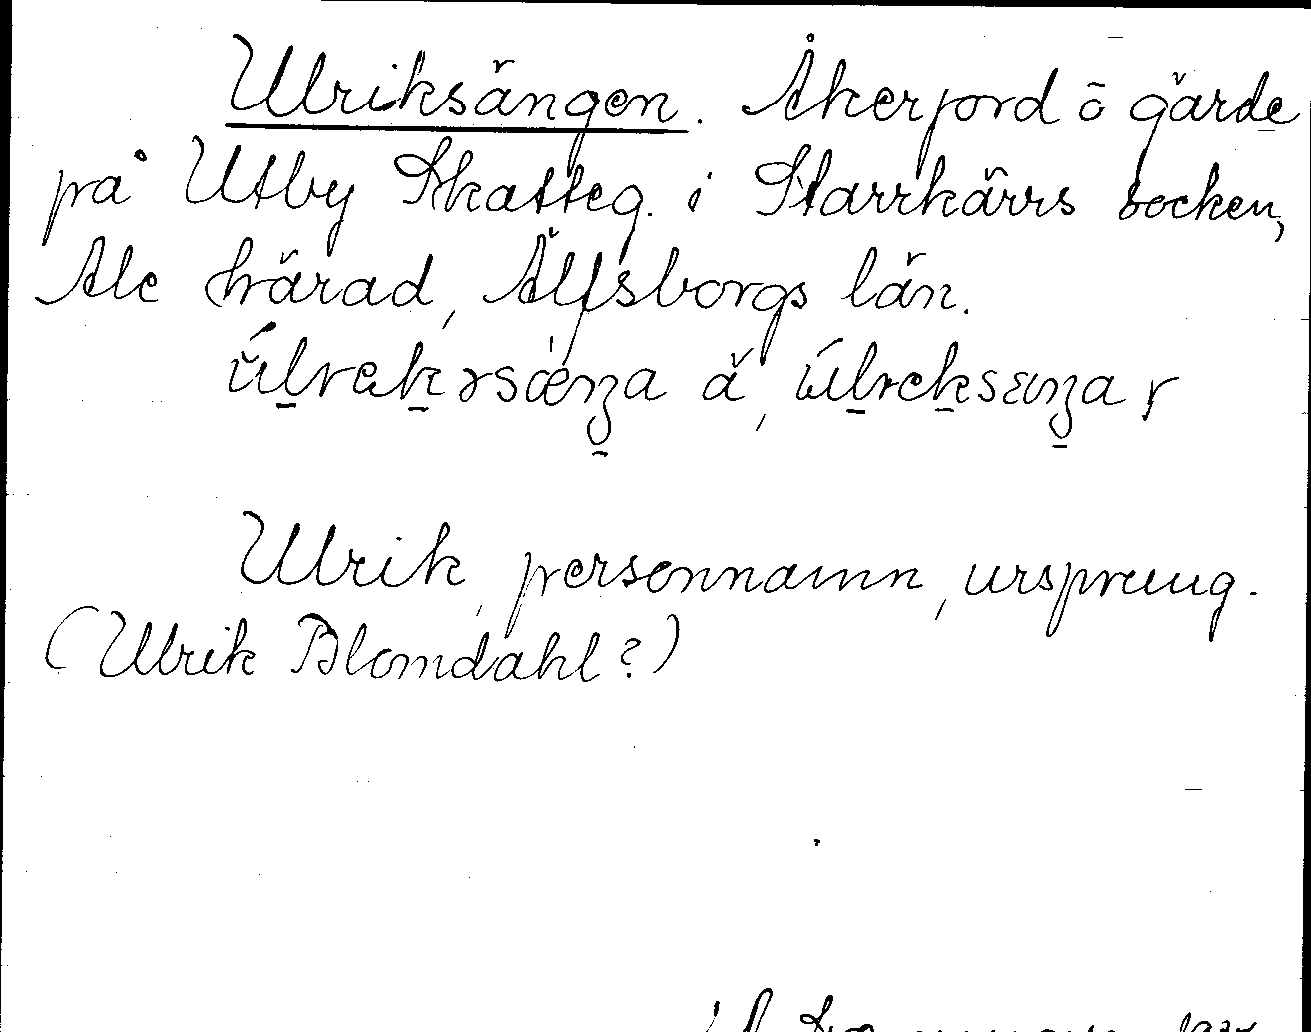 Ulriksängen. Åkerjord ō gärde
på Utby Skatteg. i Starrkärrs socken,
Ale härad, Älfsborgs län.
Ulrik, personnamn, ursprung.
(Ulrik Blomdahl?)